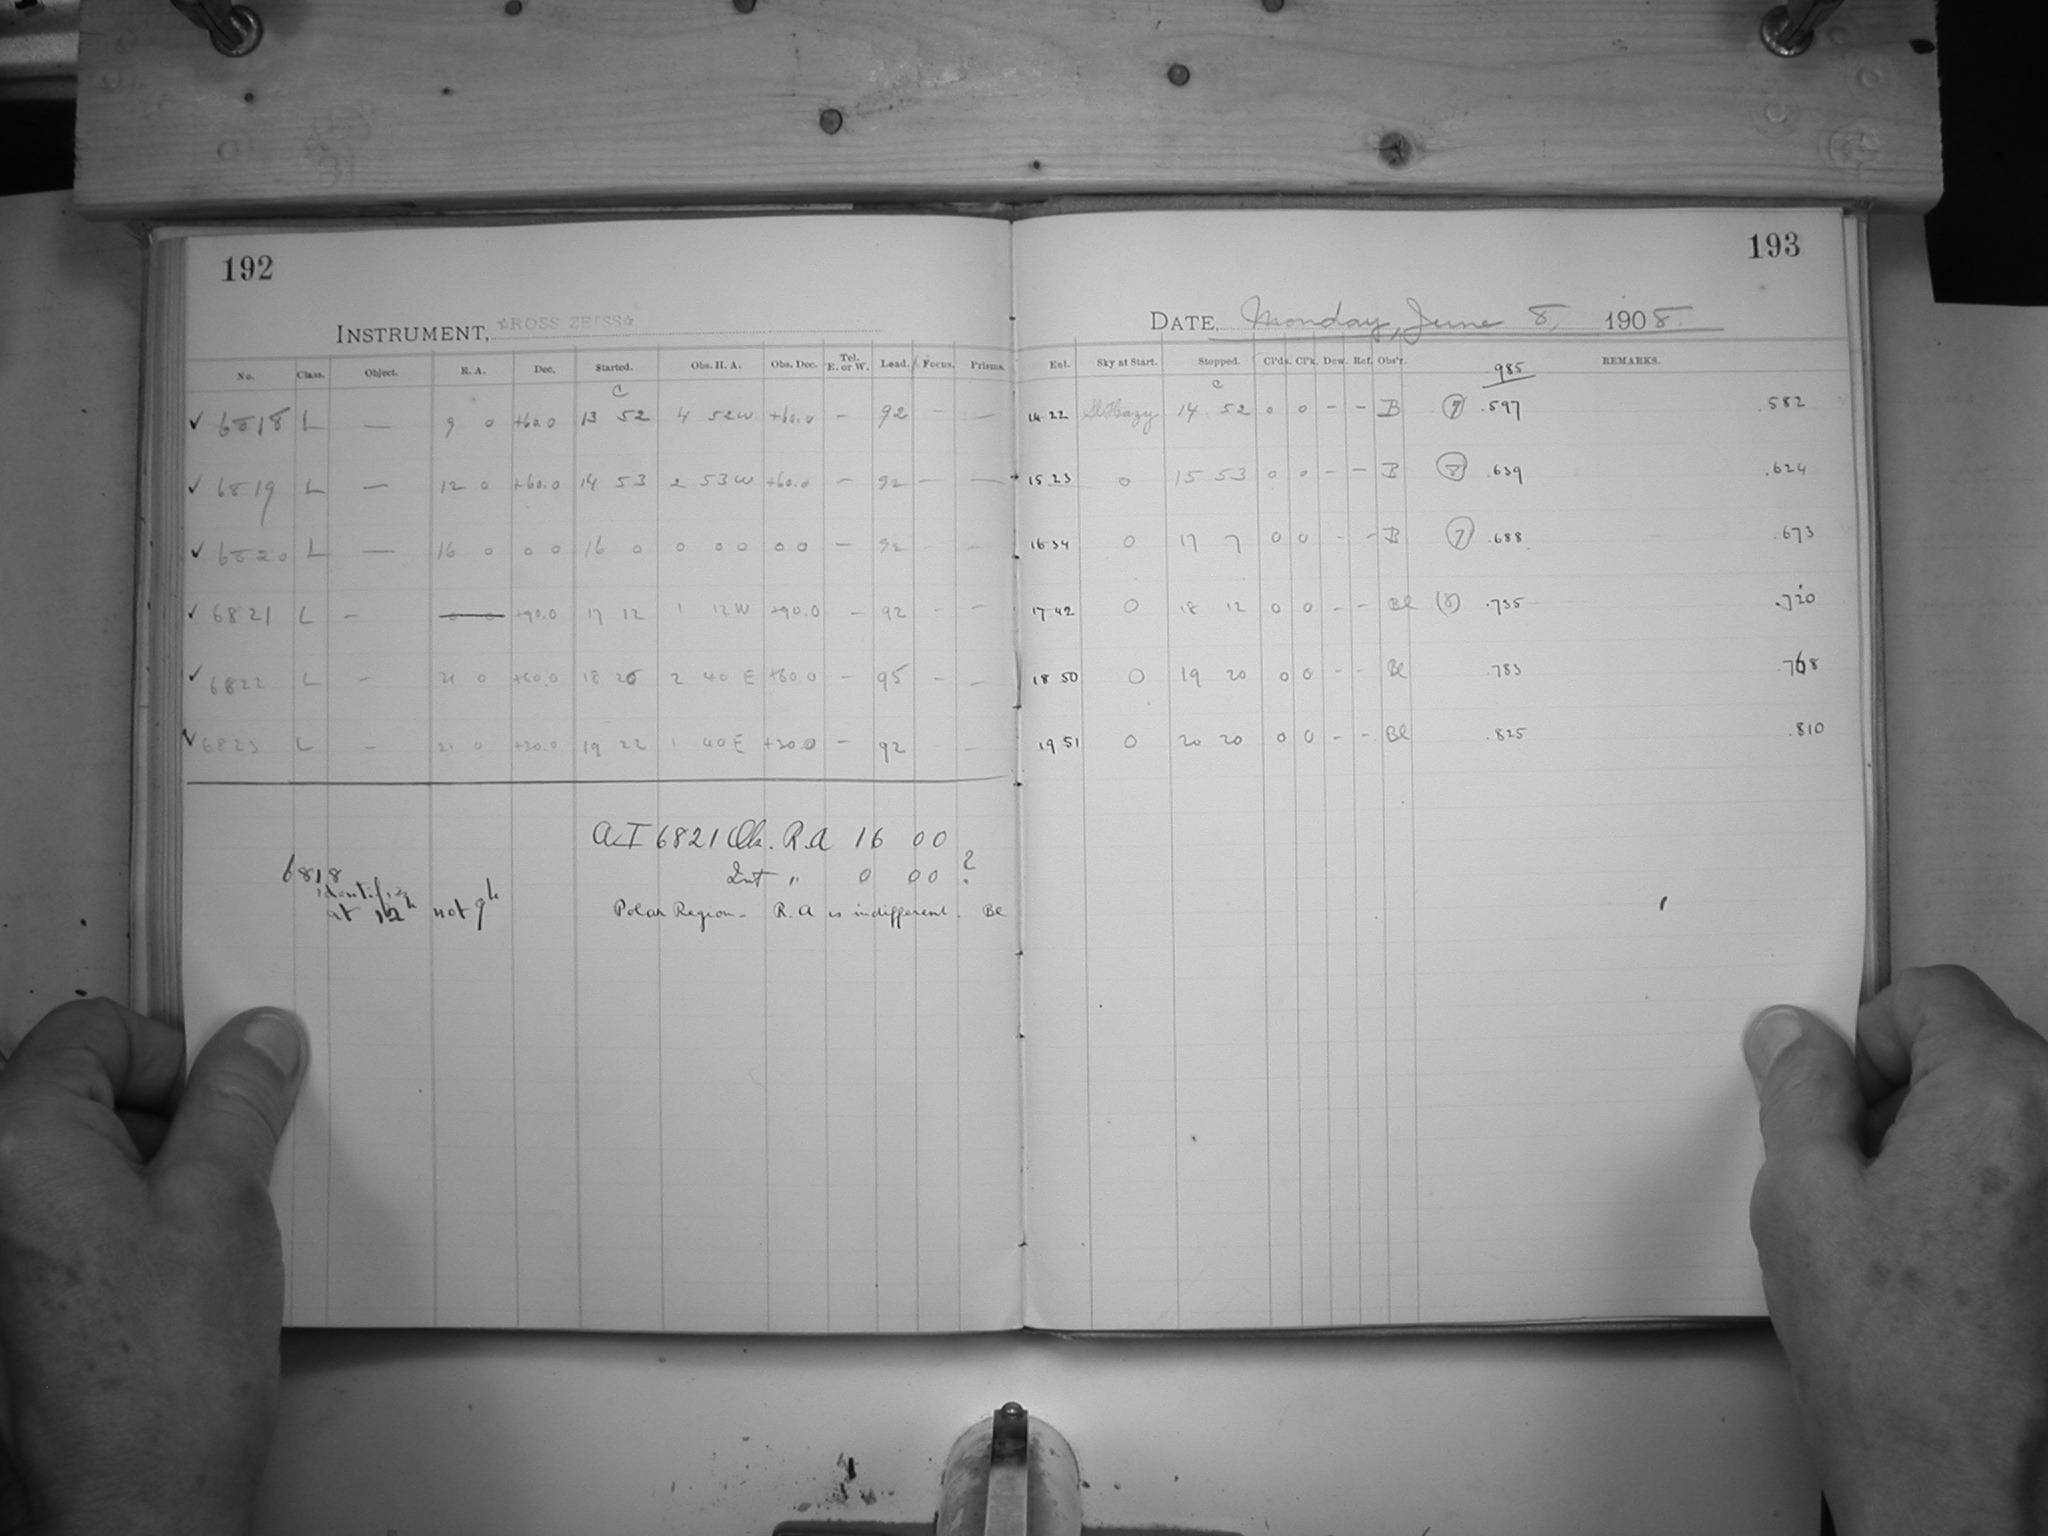 192
INSTRUMENT, ☆ROSS ZEISS☆
No. Class. Object. R. A. Dec. Started. Obs. H. A. Obs. Dec. Tel. E. or W. Lead. Focus. Prisms.
C
✓ 6818 L — 9 0 +60.0 13 52 4 52W +60.0 – 92 – –
✓ 6819 L — 12 0 +60.0 14 53 2 53W +60.0 – 92 – –
✓ 6820 L — 16 0 0 0 0 16 0 0 0 0 0 0 – 92 – –
✓ 6821 L – 0 0 +90.0 17 12 1 12W +90.0 – 92 – –
✓ 6822 L – 21 0 +60.0 18 20 2 40 E +60.0 – 95 – –
✓ 6823 L – 21 0 +30.0 19 22 1 40 E +30.0 – 92 – –
AI 6821 Ob. R.A 16 00
Int " 0 00 ?
Polar Region – R.A is indifferent. Bl
6818
identifies
at 12h not 9h
193
DATE, Monday, June 8, 1908.
Ent. Sky at Start. Stopped. Cl'ds. Cl'k. Dew. Ref. Obs'r. 985 REMARKS.
C
14 22 Sl Hazy 14 52 0 0 – – B (7) .597 .582
15 23 0 15 53 0 0 – – B (8) .639 .624
16 34 0 17 7 0 0 – – B (7) .688 .673
17 42 0 18 12 0 0 – – Bl (8) .735 .720
18 50 0 19 20 0 0 – – Bl .783 .768
19 51 0 20 20 0 0 – – Bl .825 .810